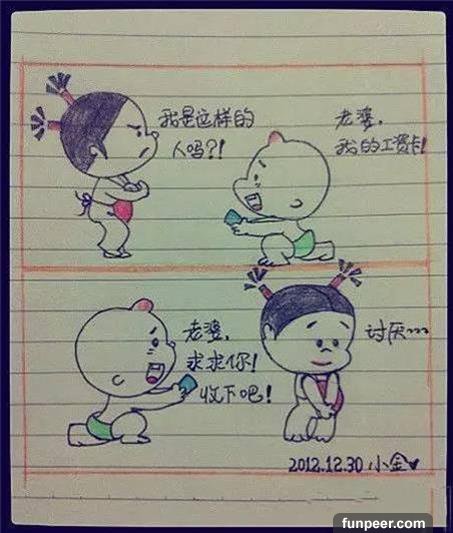 我是这样的
人吗?!
老婆,
我的工资卡!
老婆,
求求你!
收下吧!
讨厌~~~
2012.12.30 小金♥
funpeer.com